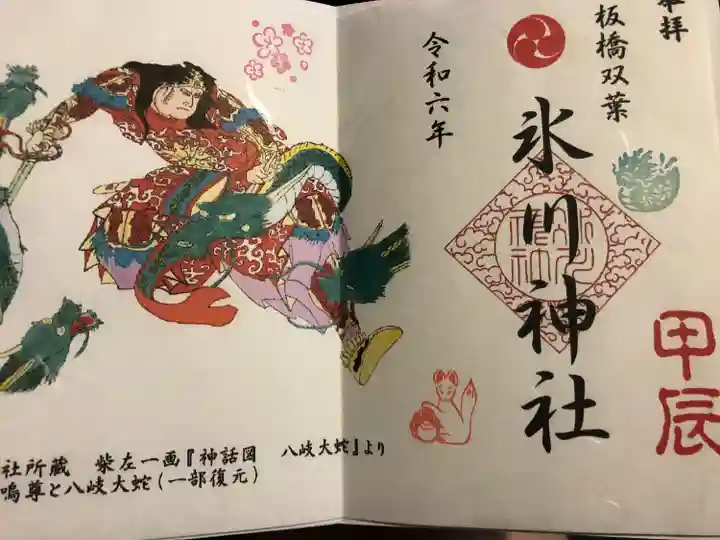 拝
板橋双葉
氷川神社
甲辰
令和六年
社所蔵 柴左一画『神話図 八岐大蛇』より
嗚尊と八岐大蛇(一部復元)